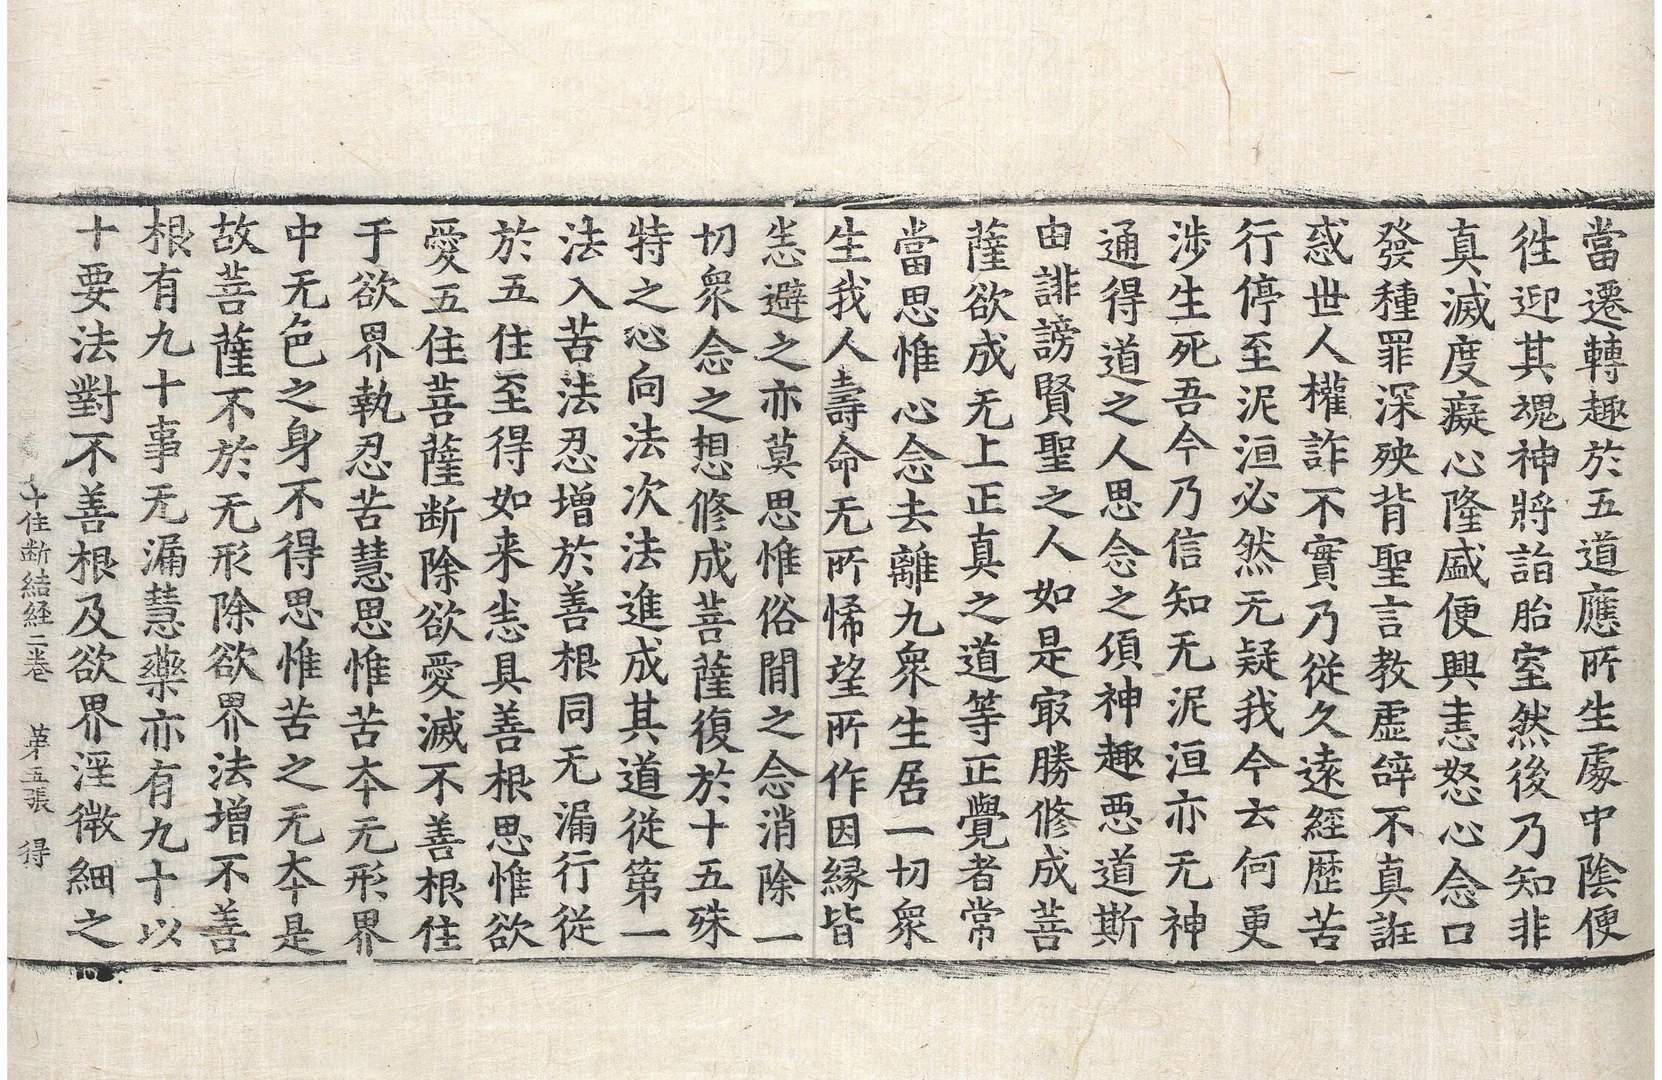 當遷轉趣於五道應所生處中陰便
徃迎其魂神將詣胎室然後乃知非
真滅度癡心隆盛便興恚怒心念口
發種罪深殃背聖言教虛辝不真誑
惑世人權詐不實乃從久遠經歷苦
行停至泥洹必然无疑我今云何更
涉生死吾今乃信知无泥洹亦无神
通得道之人思念之湏神趣惡道斯
由誹謗賢聖之人如是㝡勝修成菩
薩欲成无上正真之道等正覺者常
當思惟心念去離九衆生居一切衆
生我人壽命无所悕望所作因縁皆
恙避之亦莫思惟俗閒之念消除一
切衆念之想修成菩薩復於十五殊
特之心向法次法進成其道從第一
法入苦法忍增於善根同无漏行從
於五住至得如来恙具善根思惟欲
愛五住菩薩断除欲愛滅不善根住
于欲界執忍苦慧思惟苦本无形界
中无色之身不得思惟苦之无本是
故菩薩不於无形除欲界法增不善
根有九十事无漏慧藥亦有九十以
十要法對不善根及欲界滛微細之
十住断結経二卷 苐五張 得